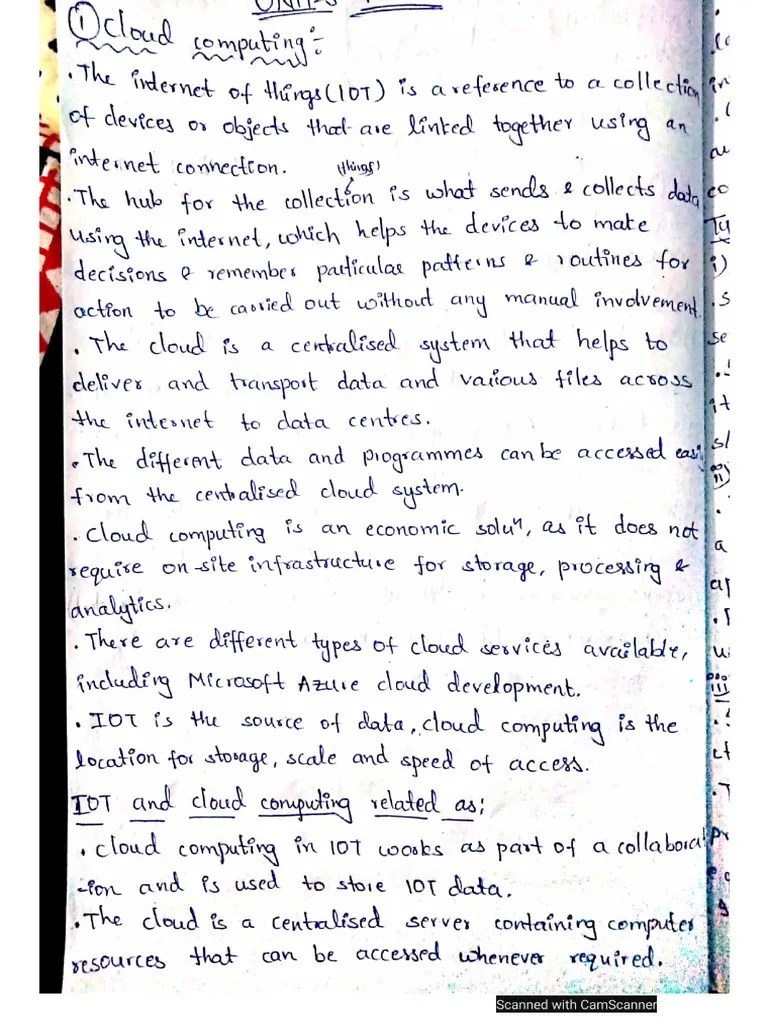 UNIT-
① Cloud computing:-
. The internet of things (IOT) is a reference to a collection
of devices or objects that are linked together using an
internet connection.
(things)
. The hub for the collection is what sends & collects data
using the internet, which helps the devices to make
decisions & remember particular patterns & routines for
action to be carried out without any manual involvement.
. The cloud is a centralised system that helps to
deliver and transport data and various files across
the internet to data centres.
. The different data and programmes can be accessed easi
from the centralised cloud system.
. Cloud computing is an economic soluⁿ, as it does not
require on-site infrastructure for storage, processing &
analytics.
. There are different types of cloud services available,
including Microsoft Azure cloud development.
. IOT is the source of data, cloud computing is the
location for storage, scale and speed of access.
IOT and cloud computing related as:
. cloud computing in IOT works as part of a collaborat
-ion and is used to store IOT data.
. The cloud is a centralised server containing computer
resources that can be accessed whenever required.
Scanned with CamScanner